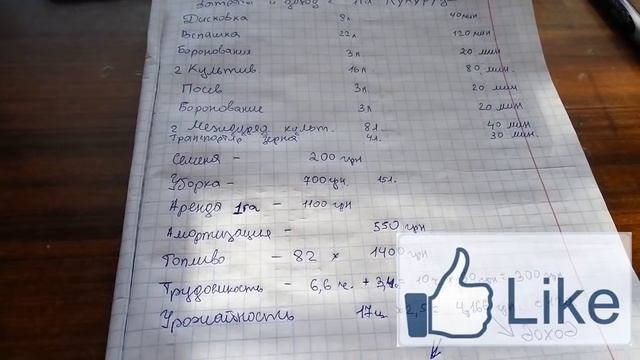 Затраты и доход с 1 га Кукуруз
Дисковка 8л 40 мин
Вспашка 22л 120 мин
Боронования 3л 20 мин
2 Культив. 16л 80 мин.
Посев 3л. 20 мин
Боронование 3л 20 мин
2 Междуряд культ. 8л. 40 мин
Транспортир зерна 4л. 30 мин.
Семена - 200 грн
Уборка - 700 грн. 15л.
Аренда 1га - 1100 грн
Амортизация - 550 грн
Топливо - 82 × 1400 грн
Трудоёмкость - 6,6 ч. + 3,4 = 300 грн
Урожайность 17ц × 2,5 =
доход
Like